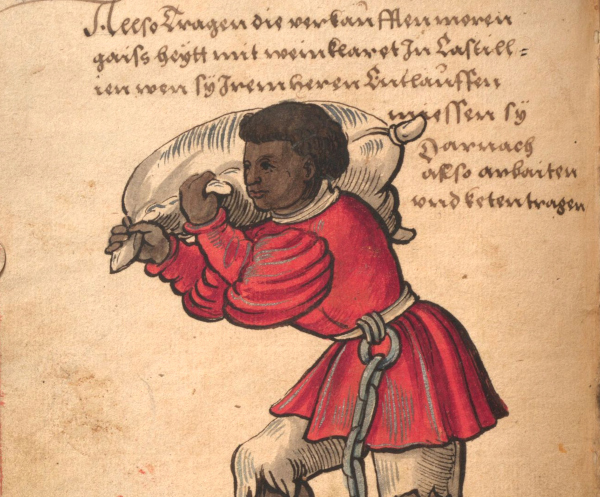 Allso Tragen die verkaufften moren
gaiss heytt mit wein klaret In Castill=
ien wen sy Irem heren Entlauffen
miessen sy
Darnach
also arbaiten
vnd keten tragen